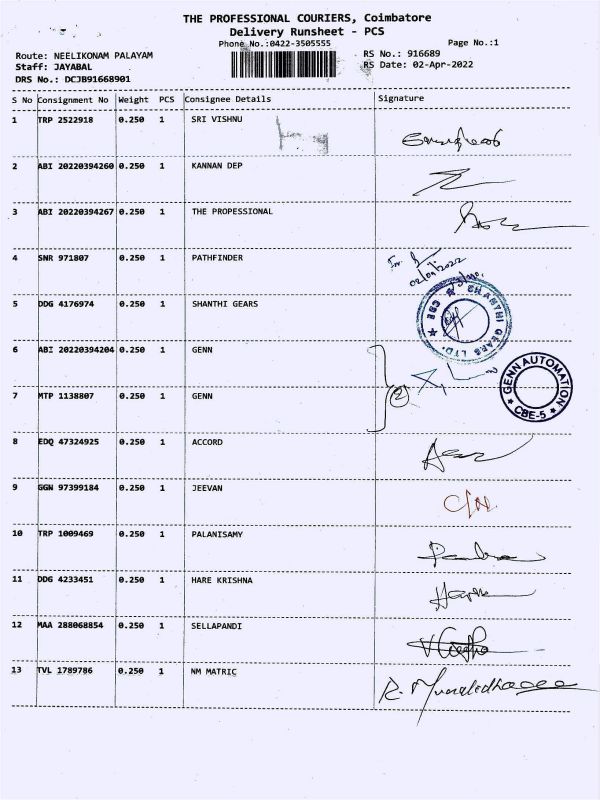 THE PROFESSIONAL COURIERS, Coimbatore
Delivery Runsheet - PCS
Phone No.:0422-3505555 Page No.:1
Route: NEELIKONAM PALAYAM RS No.: 916689
Staff: JAYABAL RS Date: 02-Apr-2022
DRS No.: DCJB91668901
S No Consignment No Weight PCS Consignee Details Signature
1 TRP 2522918 0.250 1 SRI VISHNU
2 ABI 20220394260 0.250 1 KANNAN DEP
3 ABI 20220394267 0.250 1 THE PROPESSIONAL
4 SNR 971807 0.250 1 PATHFINDER
02/04/2022
5 DDG 4176974 0.250 1 SHANTHI GEARS
SHANTHI GEARS LTD.
6 ABI 20220394204 0.250 1 GENN
2
GENN AUTOMATION
CBE-5
7 MTP 1138807 0.250 1 GENN
8 EDQ 47324925 0.250 1 ACCORD
9 GGN 97399184 0.250 1 JEEVAN
10 TRP 1009469 0.250 1 PALANISAMY
11 DDG 4233451 0.250 1 HARE KRISHNA
12 MAA 288068854 0.250 1 SELLAPANDI
13 TVL 1789786 0.250 1 NM MATRIC